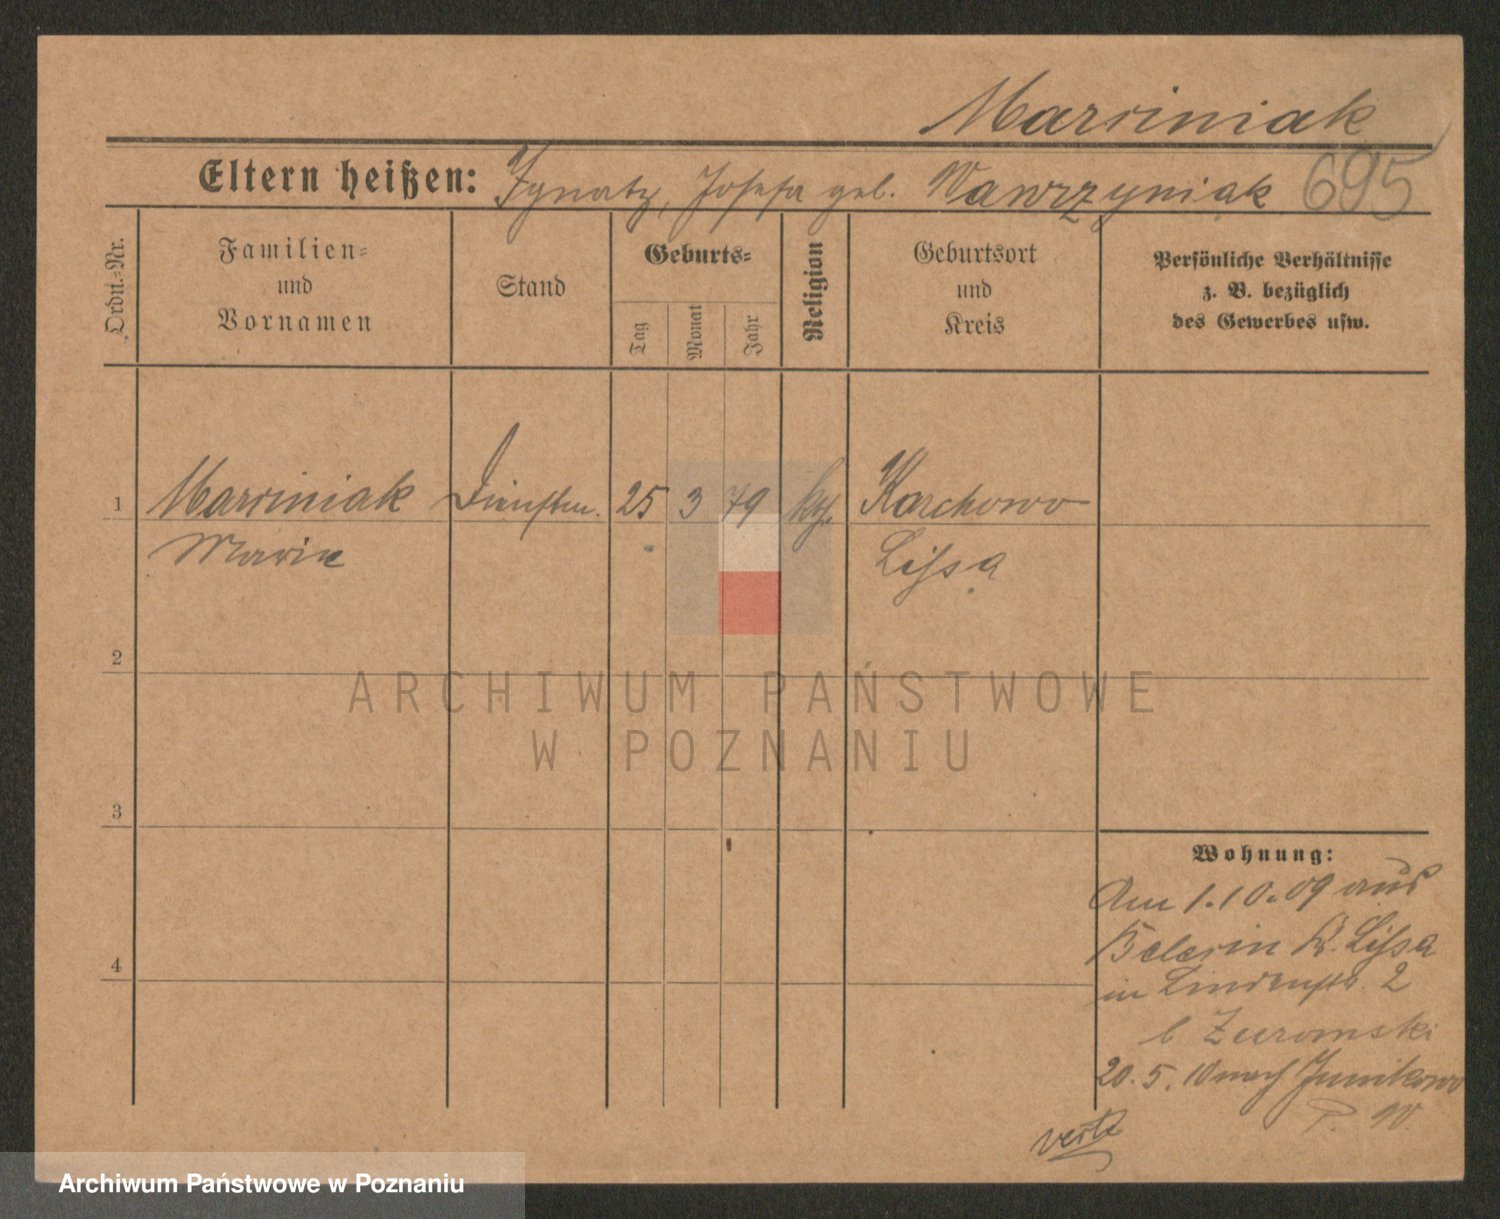 Marciniak
Eltern heißen: Ignatz, Josefa geb. Wawrzyniak 695
Ordn.-Nr.
Familien-
und
Vornamen
Stand
Geburts-
Tag
Monat
Jahr
Religion
Geburtsort
und
Kreis
Persönliche Verhältnisse
z. B. bezüglich
des Gewerbes usw.
1 Marciniak Dienstm. 25 3 79 kth. Karchowo
Marie Lissa
2
3
4
Wohnung:
Am 1.10.09 aus
K. Lissa
in Lindenstr. 2
b Zuromski
20.5.10 nach Junikowo
P. W.
ARCHIWUM PAŃSTWOWE
W POZNANIU
Archiwum Państwowe w Poznaniu